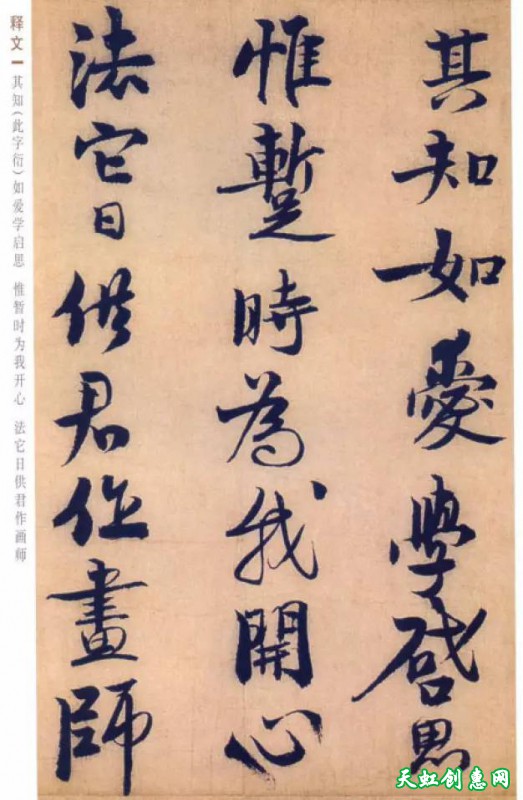 其知如愛學啓思
惟蹔時為我開心
法它日供君作畫師
释文
其知（此字衍）如爱学启思 惟暂时为我开心 法它日供君作画师
天虹创惠网